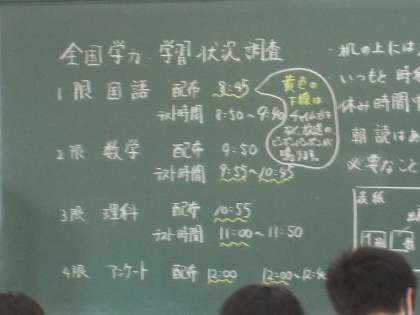 全国学力・学習状況調査
1限 国語 配布 8:45
テスト時間 8:50～9:40
2限 数学 配布 9:50
テスト時間 9:55～10:45
3限 理科 配布 10:55
テスト時間 11:00～11:50
4限 アンケート 配布 12:00 12:00～12:
黄色の
下線は
チャイムが
なく、放送の
ピンポンパンポンが
鳴ります。
・机の上には
いつもと 時
休み時間
朝読はあ
必要なこと
表紙